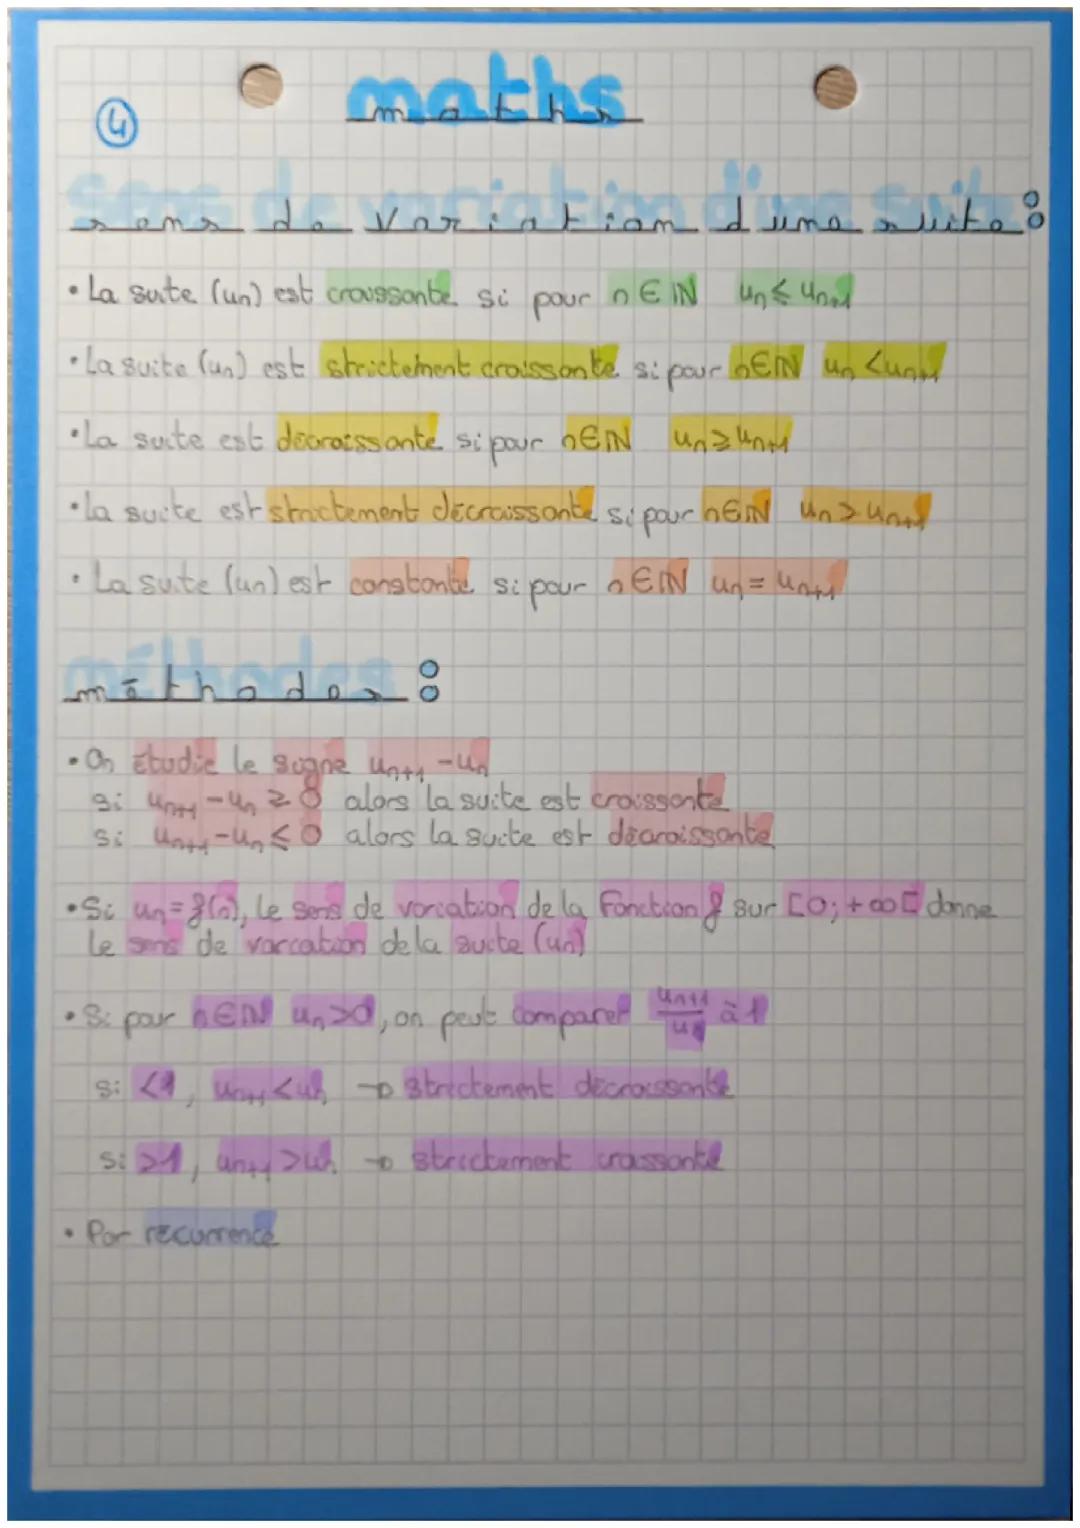 maths
④
sens de variation d'une suite :
• La suite (un) est croissante si pour n ∈ ℕ un ≤ un+1
• La suite (un) est strictement croissante si pour n∈ℕ un < un+1
• La suite est décroissante si pour n∈ℕ un ≥ un+1
• La suite est strictement décroissante si pour n∈ℕ un > un+1
• La suite (un) est constante si pour n∈ℕ un = un+1
méthodes :
• On étudie le signe un+1 - un
si un+1 - un ≥ 0 alors la suite est croissante
si un+1 - un ≤ 0 alors la suite est décroissante
• Si un = f(n), le sens de variation de la fonction f sur [0; +∞[ donne
le sens de variation de la suite (un)
• Si pour n∈ℕ un>0, on peut comparer un+1/un à 1
si <1, un+1 < un → strictement décroissante
si >1, un+1 > un → strictement croissante
• Par récurrence